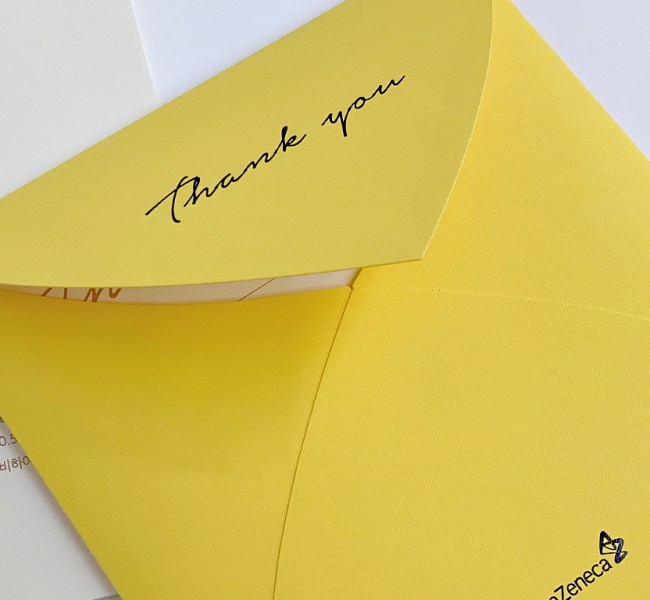 Thank you
0.5
비하
eZeneca